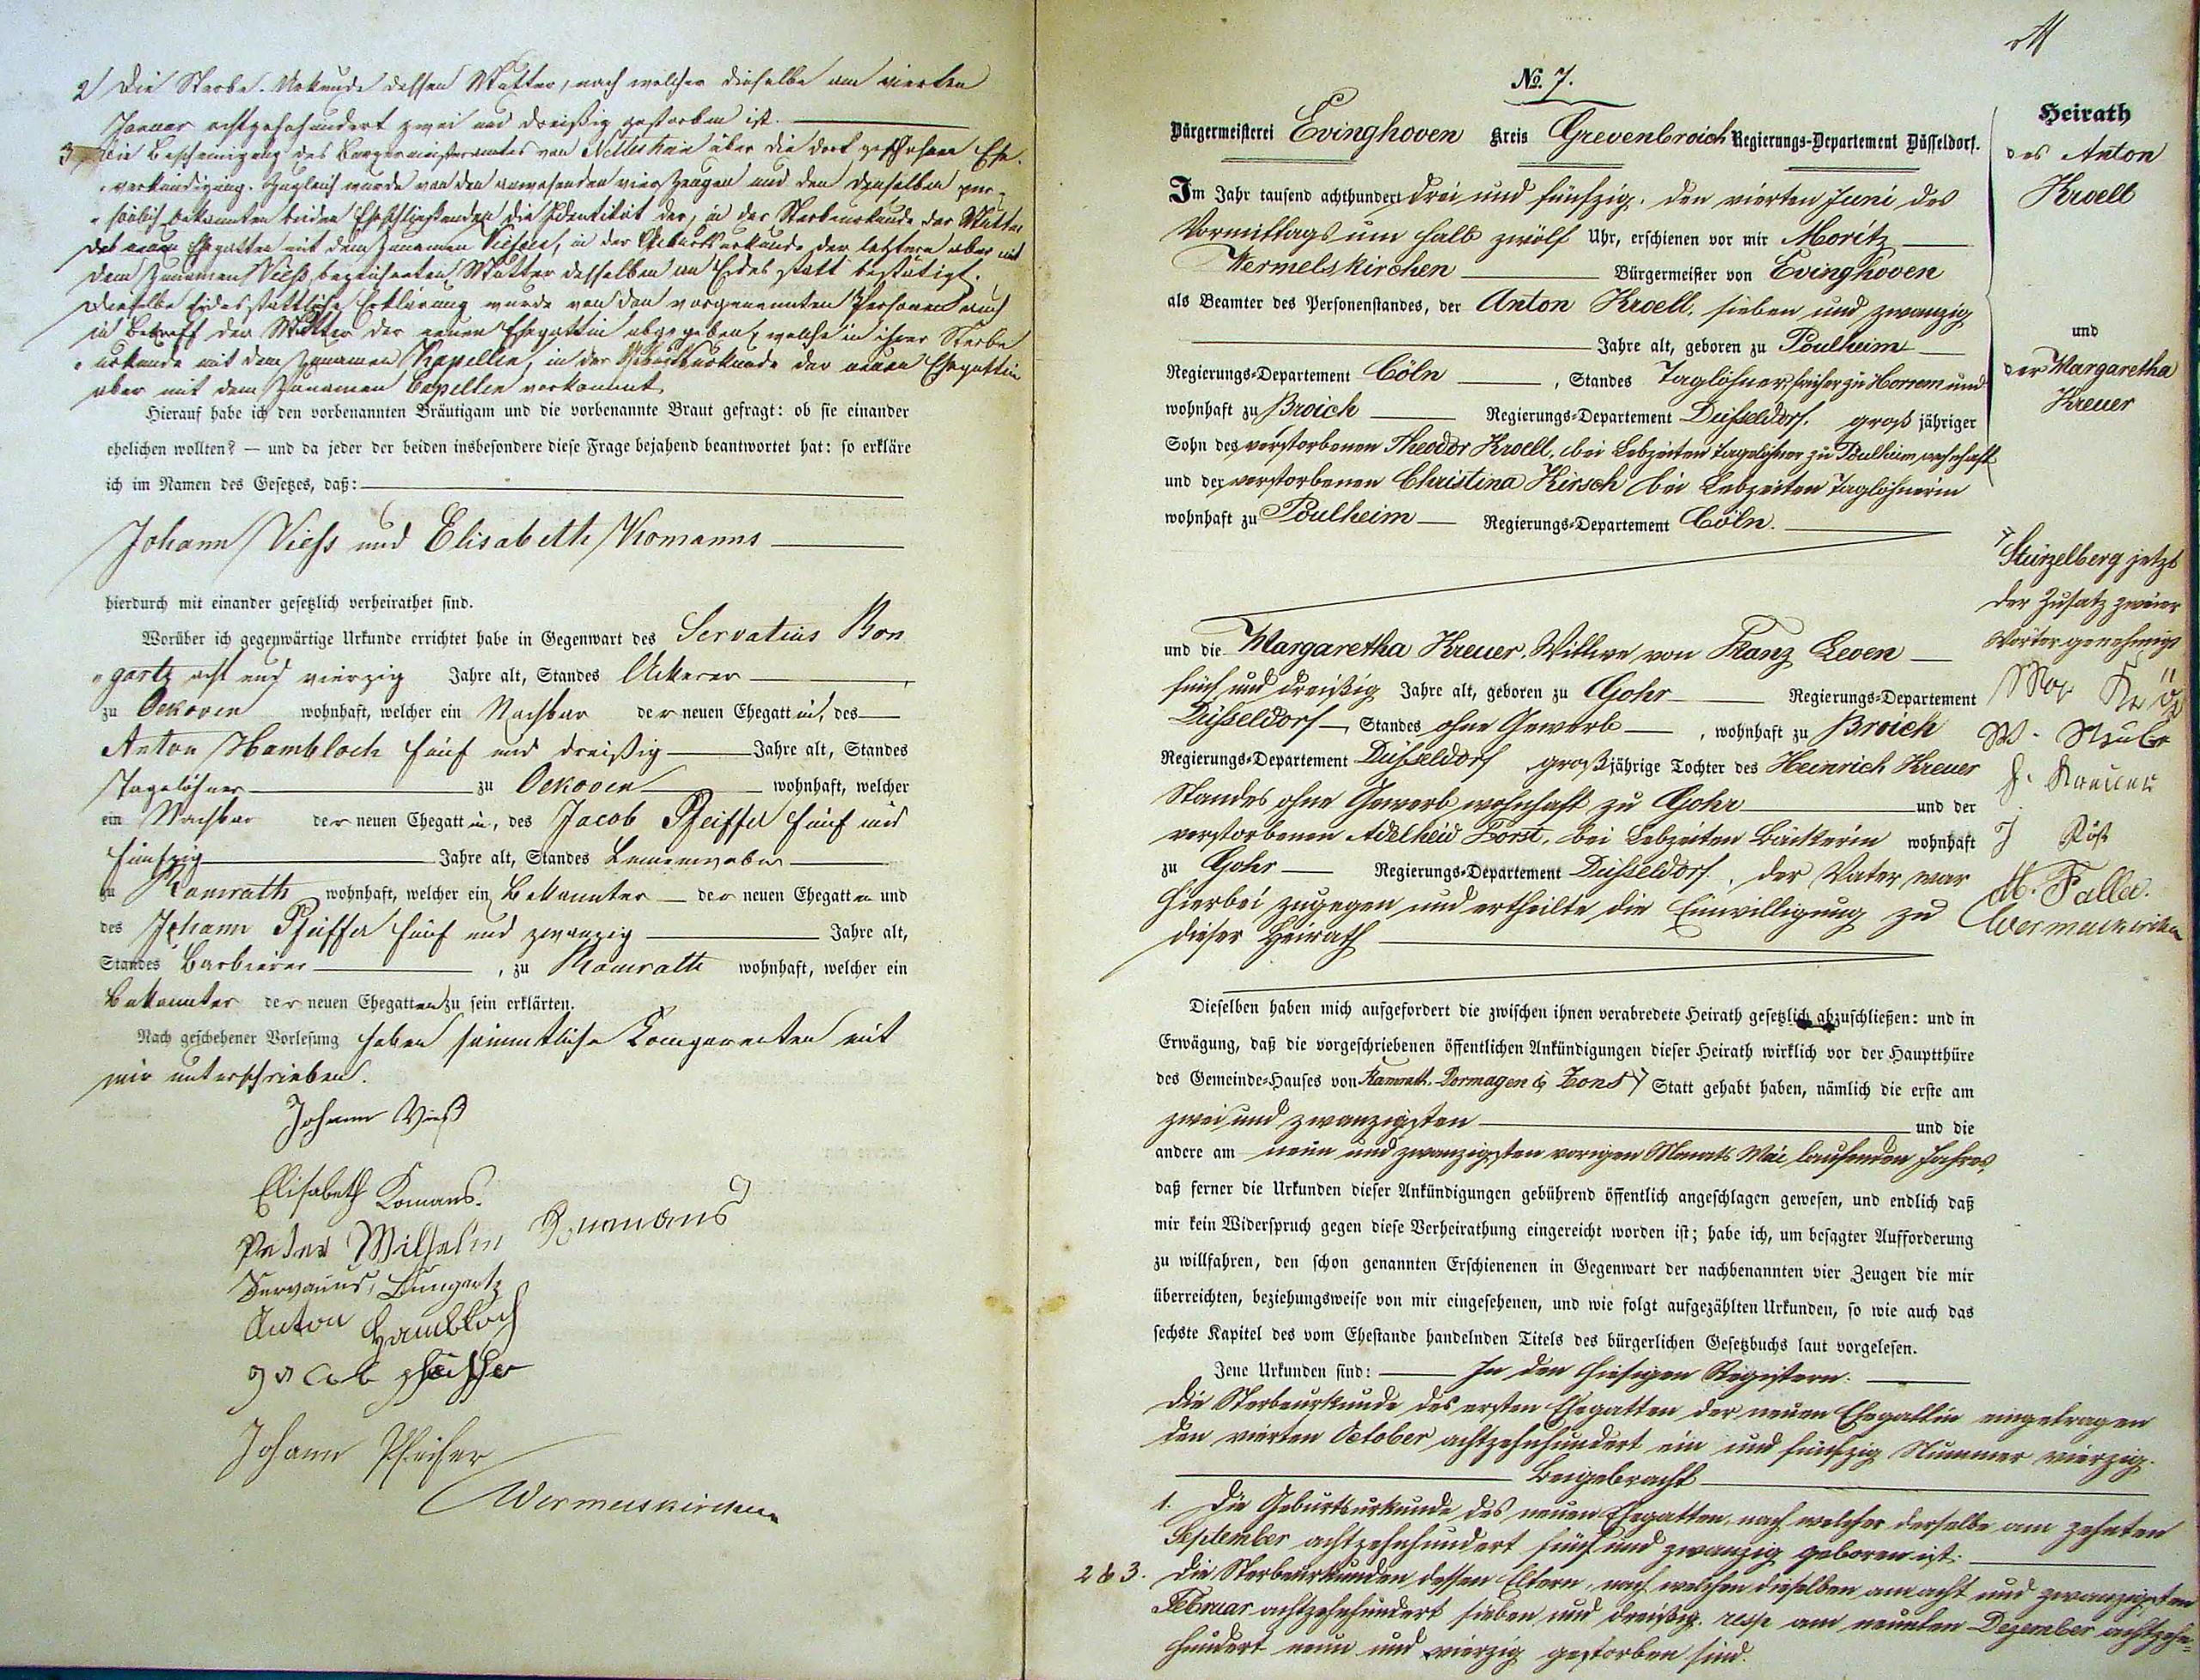 2/ Die Sterbe-Urkunde dessen Mutter, nach welcher dieselbe am vierten
Januar achtzehnhundert zwei und dreißig gestorben ist.
3/ Die Bescheinigung des Bürgermeisteramtes von über die dort geschehene Ehe-
verkündigung. Zugleich wurde von den anwesenden vier Zeugen und den denselben per-
sönlich bekannten beiden Eheschließenden die Identität der, in der Sterbeurkunde der Mutter
des neuen Ehegatten mit dem Zunamen in der Geburtsurkunde der letztere aber mit
dem Zunamen Viehs bezeichneten Mutter desselben an Eides statt bestätigt.
Dieselbe eidesstattliche Erklärung wurde von den vorgenannten Personen auch
in Betreff der Mutter der neuen Ehegattin abgegeben, welche in ihrer Sterbe
urkunde mit dem Zunamen Kapellen, in der Geburtsurkunde der neuen Ehegattin
aber mit dem Zunamen Capellen vorkommt
Hierauf habe ich den vorbenannten Bräutigam und die vorbenannte Braut gefragt: ob sie einander
ehelichen wollten? — und da jeder der beiden insbesondere diese Frage bejahend beantwortet hat: so erkläre
ich im Namen des Gesetzes, daß:
Johann Viehs und Elisabeth Komanns
hierdurch mit einander gesetzlich verheirathet sind.
Worüber ich gegenwärtige Urkunde errichtet habe in Gegenwart des Servatius Bon
gartz acht und vierzig Jahre alt, Standes Ackerer
zu Oekoven wohnhaft, welcher ein Nachbar der neuen Ehegattin, des
Anton Hambloch fünf und dreißig Jahre alt, Standes
Tagelöhner zu Oekoven wohnhaft, welcher
ein Nachbar der neuen Ehegattin, des Jacob Pfeiffer fünf und
fünfzig Jahre alt, Standes Leinenweber
zu Ramrath wohnhaft, welcher ein Bekannter der neuen Ehegatten und
des Johann Pfeiffer fünf und zwanzig Jahre alt,
Standes Barbierer, zu Ramrath wohnhaft, welcher ein
Bekannter der neuen Ehegatten zu sein erklärten.
Nach geschehener Vorlesung haben sämmtliche Komparenten mit
mir unterschrieben.
Johann Vieß
Elisabeth Komans.
Peter Wilhelm Koumans
Servatius Bungartz
Anton Hambloch
Jacob Pfeiffer
Johann Pfeifer
Wermelskirchen
No. 7.
Bürgermeisterei Evinghoven Kreis Grevenbroich Regierungs-Departement Düsseldorf.
Im Jahr tausend achthundert drei und fünfzig, den vierten Juni des
Vormittags um halb zwölf Uhr, erschienen vor mir Moritz
Wermelskirchen Bürgermeister von Evinghoven
als Beamter des Personenstandes, der Anton Kroell, sieben und zwanzig
Jahre alt, geboren zu Poulheim
Regierungs-Departement Cöln, Standes Taglöhner, früher zu Horrem und
wohnhaft zu Broich Regierungs-Departement Düsseldorf, groß jähriger
Sohn des verstorbenen Theodor Kroell, bei Lebzeiten Tagelöhner zu Poulheim wohnhaft
und der verstorbenen Christina Kirsch bei Lebzeiten Taglöhnerin
wohnhaft zu Poulheim Regierungs-Departement Cöln.
und die Margaretha Kreuer, Wittwe von Franz Leven
fünf und dreißig Jahre alt, geboren zu Gohr Regierungs-Departement
Düsseldorf, Standes ohne Gewerb, wohnhaft zu Broich
Regierungs-Departement Düsseldorf großjährige Tochter des Heinrich Kreuer
Standes ohne Gewerb wohnhaft zu Gohr und der
verstorbenen Adelheid Forst, bei Lebzeiten Bäckerin wohnhaft
zu Gohr Regierungs-Departement Düsseldorf, der Vater war
hierbei zugegen und ertheilte die Einwilligung zu
dieser Heirath
Dieselben haben mich aufgefordert die zwischen ihnen verabredete Heirath gesetzlich abzuschließen: und in
Erwägung, daß die vorgeschriebenen öffentlichen Ankündigungen dieser Heirath wirklich vor der Hauptthüre
des Gemeinde-Hauses von Ramrath, Dormagen & Zons Statt gehabt haben, nämlich die erste am
zwei und zwanzigsten und die
andere am neun und zwanzigsten vorigen Monats Mai laufenden Jahres,
daß ferner die Urkunden dieser Ankündigungen gebührend öffentlich angeschlagen gewesen, und endlich daß
mir kein Widerspruch gegen diese Verheirathung eingereicht worden ist; habe ich, um besagter Aufforderung
zu willfahren, den schon genannten Erschienenen in Gegenwart der nachbenannten vier Zeugen die mir
überreichten, beziehungsweise von mir eingesehenen, und wie folgt aufgezählten Urkunden, so wie auch das
sechste Kapitel des vom Ehestande handelnden Titels des bürgerlichen Gesetzbuchs laut vorgelesen.
Jene Urkunden sind: In den hiesigen Registern:
die Sterbeurkunde des ersten Ehegatten der neuen Ehegattin eingetragen
den vierten October achtzehnhundert ein und fünfzig Nummer vierzig.
Beigebracht
1. Die Geburtsurkunde des neuen Ehegatten, nach welcher derselbe am zehnten
September achtzehnhundert fünf und zwanzig geboren ist.
2 & 3. die Sterbeurkunden dessen Eltern, nach welchen dieselben am acht und zwanzigsten
Februar achtzehnhundert sieben und dreißig, resp am neunten Dezember achtzehn-
hundert neun und vierzig gestorben sind.
Heirath
des Anton
Kroell
und
der Margaretha
Kreuer
Stürzelberg jetzt
der Zusatz zweier
Wörter genehmigt
H. Kreuer
M. Faller.
Wermelskirchen